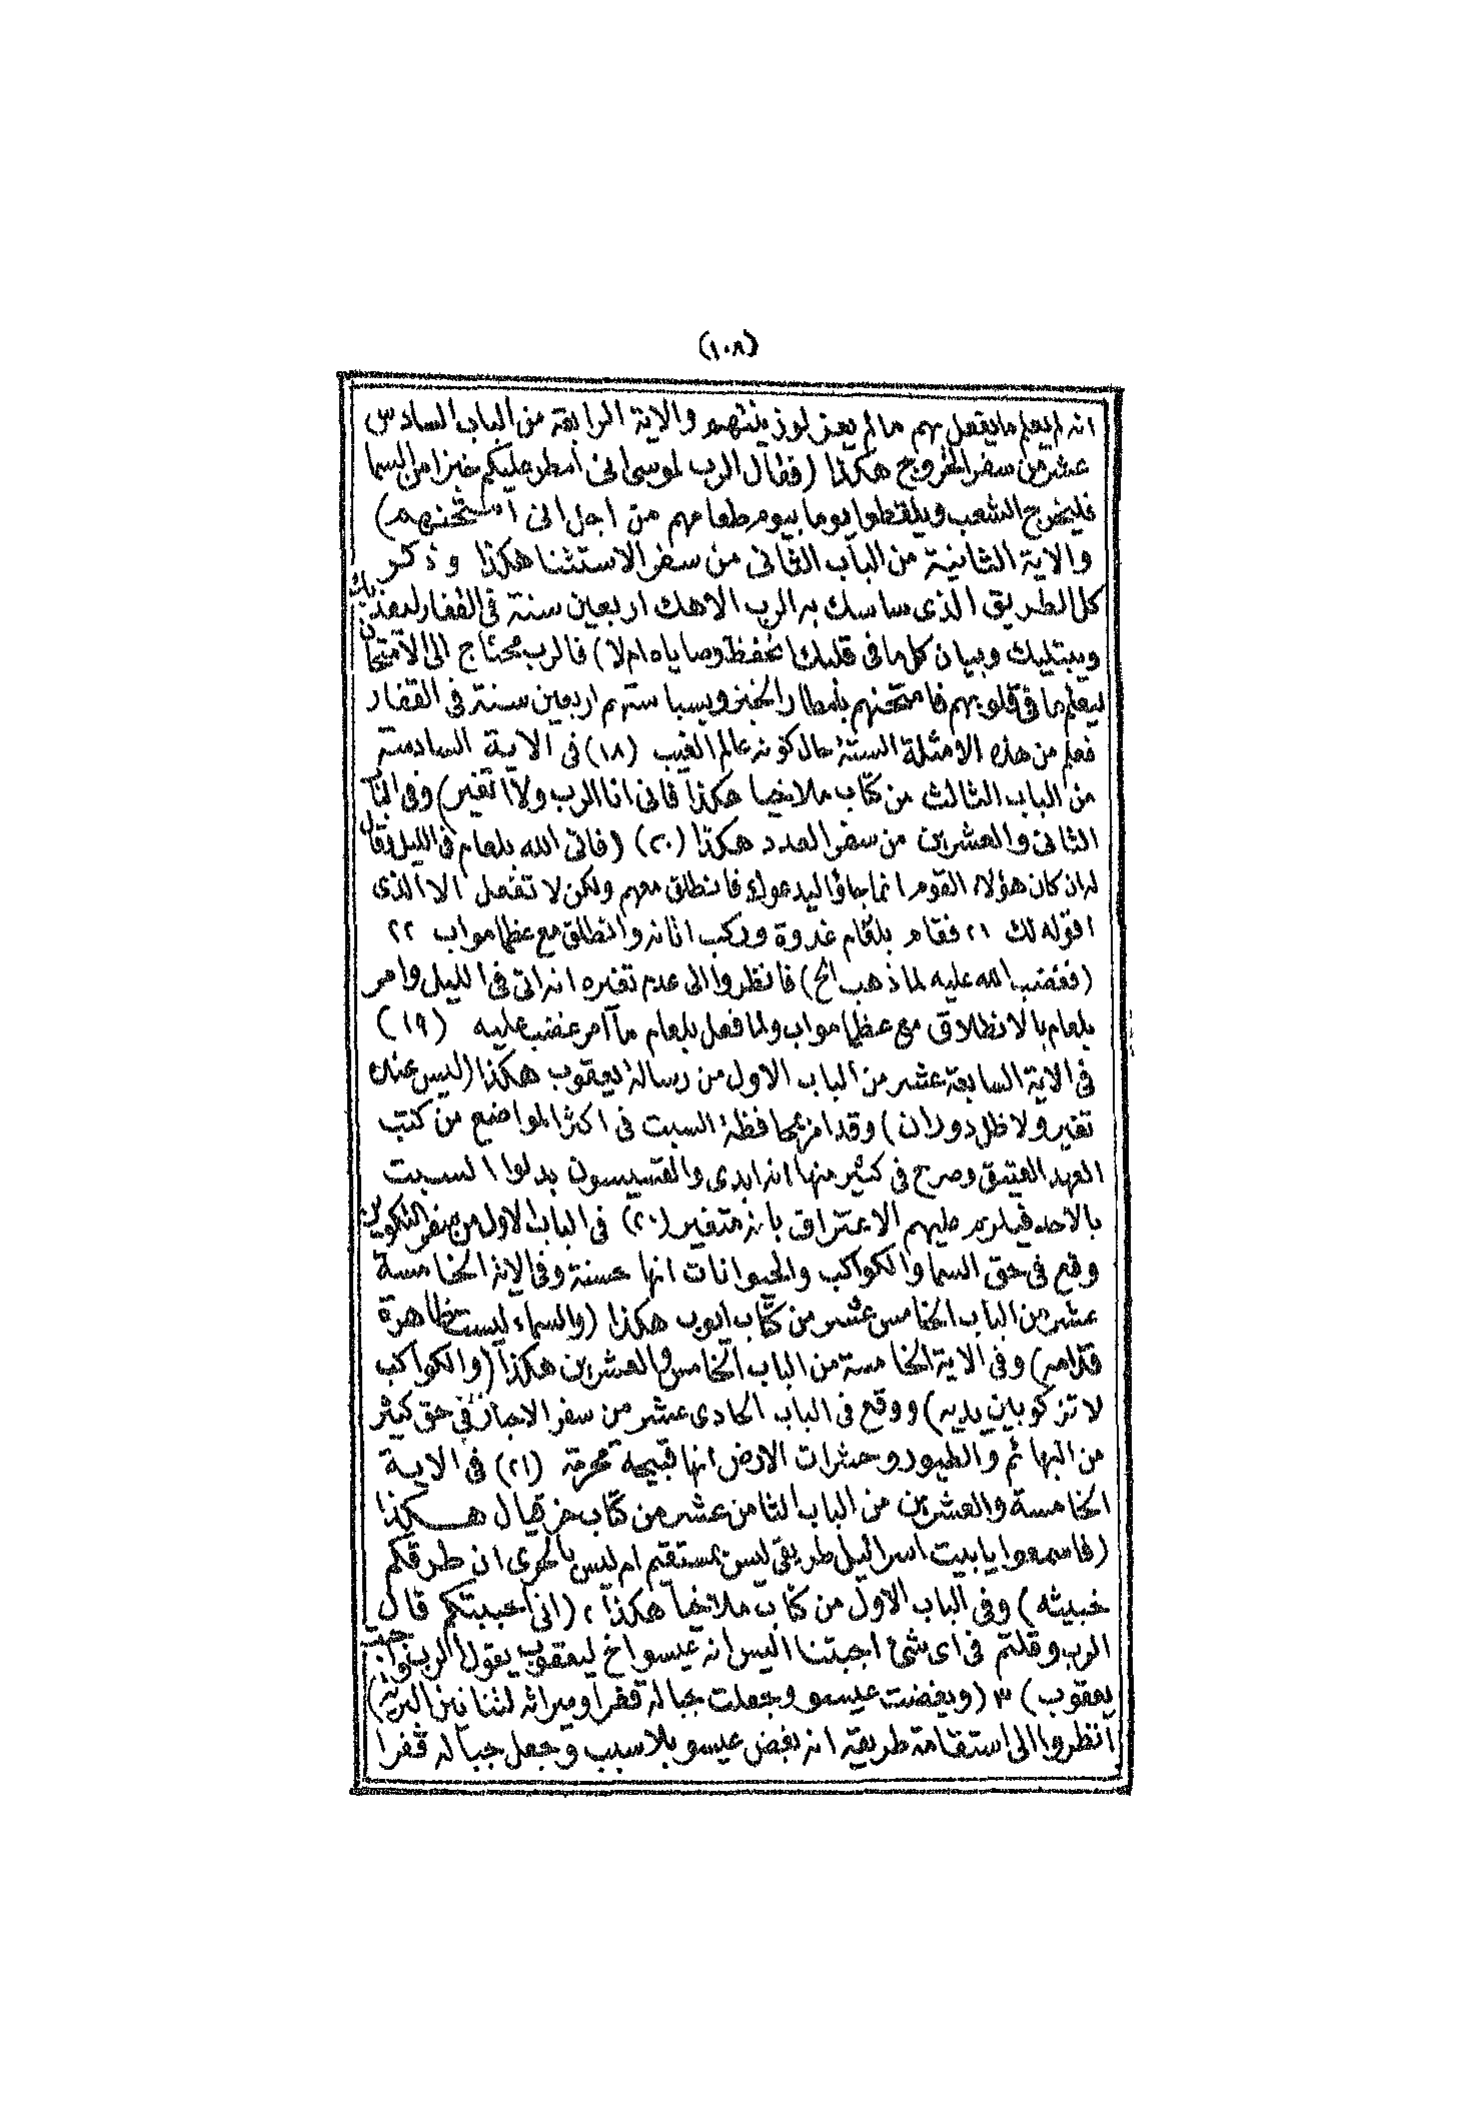 (١٠٨)
انه لم يعلم ما يفعل بهم ما لم يعزلوا زينتهم والاية الرابعة من الباب السادس
عشر من سفر الخروج هكذا (فقال الرب لموسى انى امطر عليكم خبزا من السما
فليخرج الشعب ويلقطوا يوما بيوم طعامهم من اجل انى امتحنهم)
والاية الثانية من الباب الثانى من سفر الاستثنا هكذا وذكر
كل الطريق الذى ساسك به الرب الاهك اربعين سنة فى القفار ليعذبك
ويبتليك وبيان كل ما فى قلبك اتحفظ وصاياه ام لا) فالرب محتاج الى الامتحان
ليعلم ما فى قلوبهم فامتحنهم بامطار الخبز وبسياستهم اربعين سنة فى القفار
فعلم من هذه الامثلة الستة حال كونه عالم الغيب (١٨) فى الاية السادسة
من الباب الثالث من كتاب ملاخيا هكذا فانى انا الرب ولا اتغير) وفى الباب
الثانى والعشرين من سفر العدد هكذا (٢٠) (فاتى الله بلعام فى الليل وقال
له ان كان هؤلاء القوم انما جاؤا ليدعوك فانطلق معهم ولكن لا تفعل الا الذى
اقوله لك ٢١ فقام بلعام غدوة وركب اتانه وانطلق مع عظما مواب ٢٢
(فغضب الله عليه لما ذهب الخ) فانظروا الى عدم تغيره انه اتى فى الليل وامر
بلعام بالانطلاق مع عظما مواب ولما فعل بلعام ما امر غضب عليه (١٩)
فى الاية السابعة عشر من الباب الاول من رسالة يعقوب هكذا (ليس عنده
تغير ولا ظل دوران) وقد امر بمحافظة السبت فى اكثر المواضع من كتب
العهد العتيق وصرح فى كثير منها انه ابدى والقسيسون بدلوا السبت
بالاحد فيلزم عليهم الاعتراف بانه متغير (٢٠) فى الباب الاول من سفر التكوين
وقع فى حق السما والكواكب والحيوانات انها حسنة وفى الاية الخامسة
عشر من الباب الخامس عشر من كتاب ايوب هكذا (والسماء ليست ظاهرة
قدامه) وفى الاية الخامسة من الباب الخامس والعشرين هكذا (والكواكب
لا تزكو بين يديه) ووقع فى الباب الحادى عشر من سفر الاحبار فى حق كثير
من البهائم والطيور وحشرات الارض انها قبيحة محرمة (٢١) فى الاية
الخامسة والعشرين من الباب الثامن عشر من كتاب حزقيال هكذا
(فاسمعوا يا بيت اسرائيل طريقى ليس بمستقيم ام ليس بالحرى ان طرقكم
خبيثه) وفى الباب الاول من كتاب ملاخيا هكذا ٢ (انى احببتكم قال
الرب وقلتم فى اى شئ احبتنا اليس انه عيسو اخ ليعقوب يقول الرب واحببت
يعقوب) ٣ (وبغضت عيسو وجعلت جباله قفرا وميراثه لتنانين البرية)
انظروا الى استقامة طريقه انه بغض عيسو بلا سبب وجعل جباله قفرا